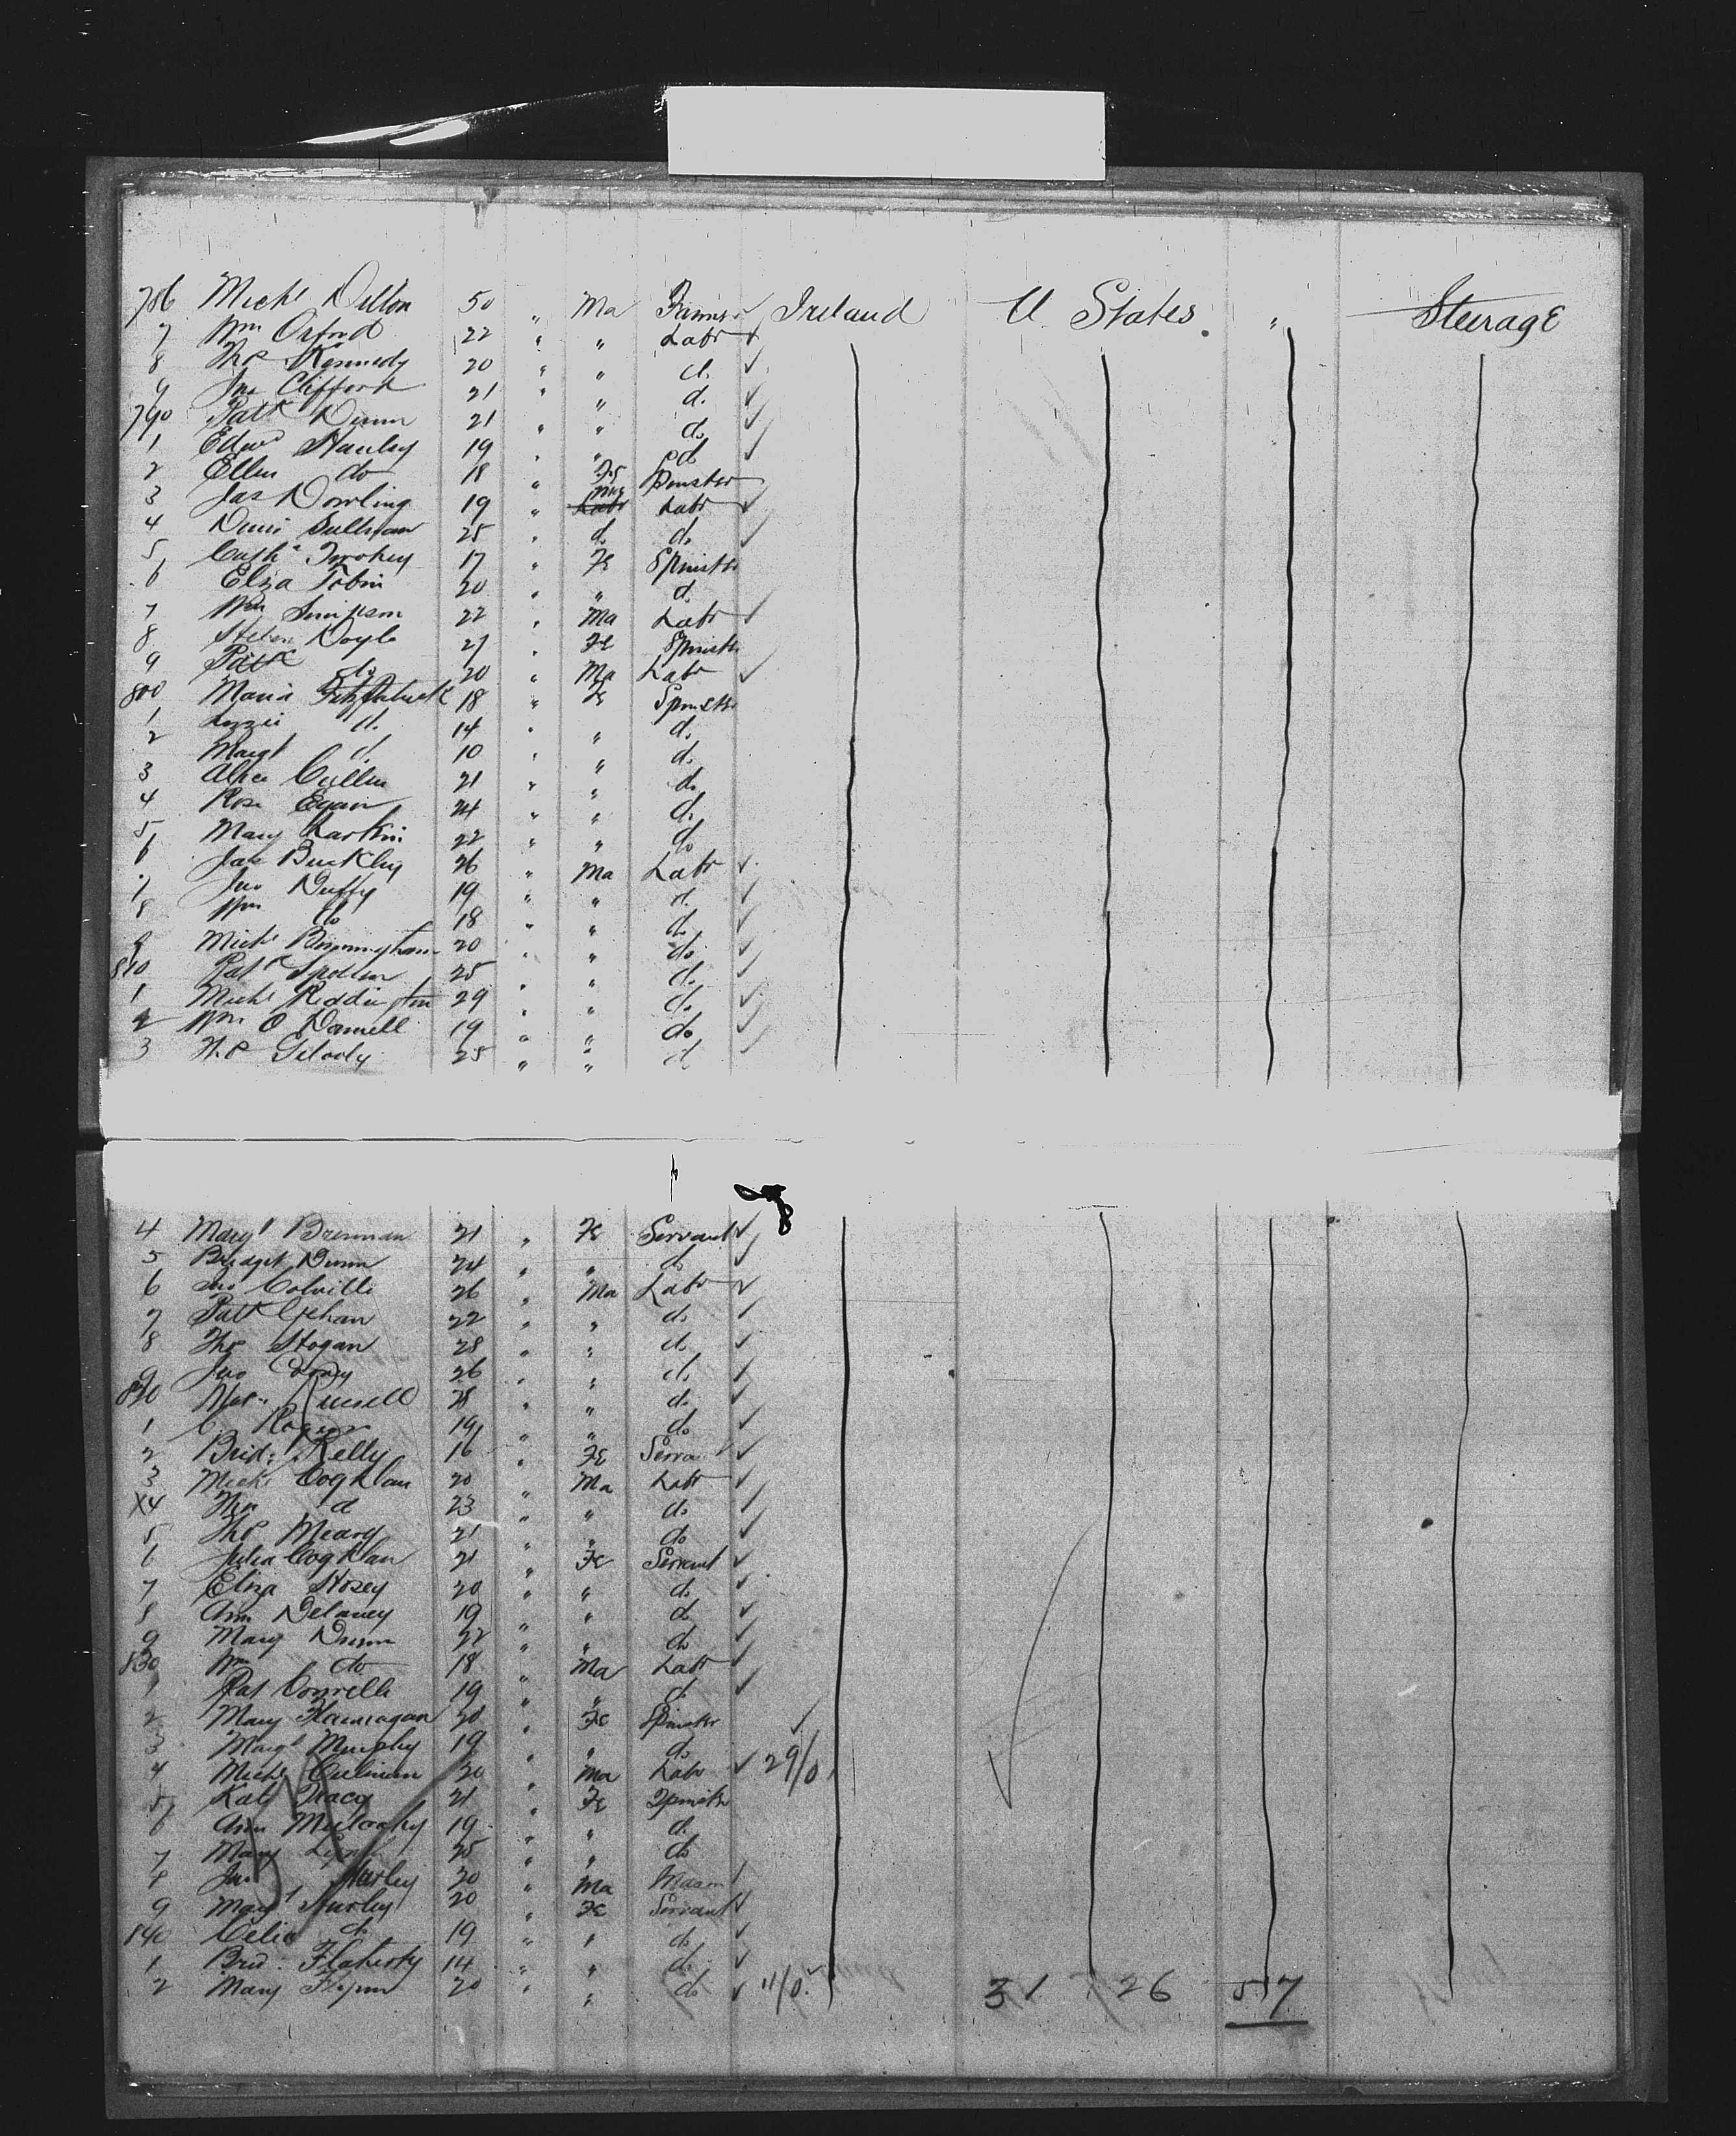 786 Michl Dillon 50 " Ma Farmer Ireland U States " Steerage
7 Wm Oxford 22 " " Labr
8 Thos Kennedy 20 " " d.
9 Jno Clifford 21 " " d.
790 Patk Dunn 21 " " do
1 Edwd Hanley 19 " " do
2 Ellen do 18 " Fe Spinster
3 Jas Dowling 19 " Labr Labr
4 Denis Sullivan 25 " d. do
5 Cathe Twohey 17 " Fe Spinster
6 Eliza Tobin 20 " " d.
7 Wm Simpson 22 " Ma Labr
8 Doyle 21 " Fe Spinstr
9 Patk do 20 " Ma Labr
800 Maria Fitzpatrick 18 " Fe Spinstr
1 Lizzie d. 14 " " d.
2 Margt d. 10 " " d.
3 Alice Cullen 21 " " do
4 Rose Egan 24 " " d.
5 Mary Larkin 22 " " do
6 Jas Buckley 26 " Ma Labr
7 Jno Duffy 19 " " d.
8 Wm do 18 " " d.
9 Michl Birmingham 20 " " do
810 Patk 25 " " d.
1 Michl Reddington 29 " " d.
2 Wm O Donnell 19 " " do
3 25 " " d
8
4 Margt Brennan 21 " Fe Servant
5 Bridget Dunn 24 " " d.
6 Jno Colville 26 " Ma Labr
7 Patk Gehan 22 " " do
8 Thos Hogan 28 " " d.
9 Jno 26 " " d.
820 Russell 28 " " d.
1 C. Rogers 19 " " do
2 Brid: Kelly 16 " Fe Servant
3 Michl Coghlan 20 " Ma Labr
X4 d 23 " " do
5 Thos Meary 21 " " do
6 Julia Coghlan 21 " Fe Servant
7 Eliza Hosey 20 " " do
8 Ann Delaney 19 " " do
9 Mary Dunn 22 " " do
830 Wm do 18 " Ma Labr
1 Pat 19 " " d.
2 Mary Flannagan 20 " Fe Spinstr
3 Margt Murphy 19 " " do
4 Michl 20 " Ma Labr 29/0
5 Kate Tracy 21 " Fe Spinstr
6 Ann 19 " " d.
7 Mary Lynch 25 " " do
8 Jno Hurley 20 " Ma Mason
9 Margt Hurley 20 " Fe Servant
840 Celia do 19 " " do
1 Brid: Flaherty 14 " " do
2 Mary Flynn 20 " " do 11/0 31 26 57